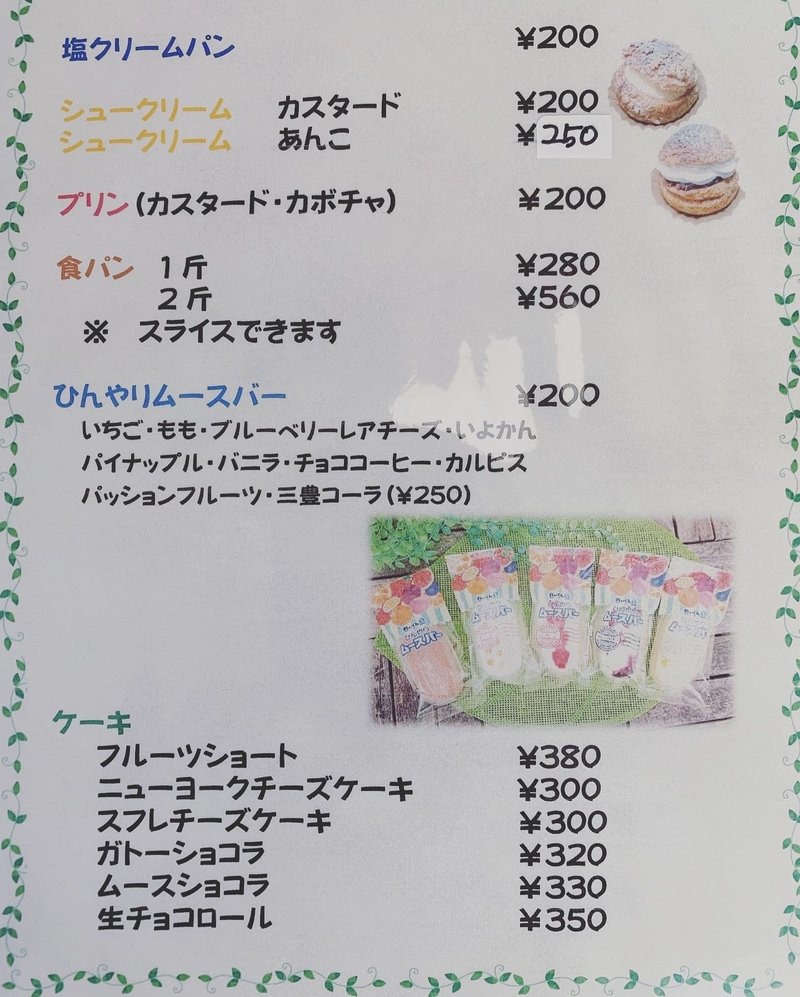 塩クリームパン ¥200
シュークリーム カスタード ¥200
シュークリーム あんこ ¥250
プリン(カスタード・カボチャ) ¥200
食パン 1斤 ¥280
2斤 ¥560
※ スライスできます
ひんやりムースバー ¥200
いちご・もも・ブルーベリーレアチーズ・いよかん
パイナップル・バニラ・チョココーヒー・カルピス
パッションフルーツ・三豊コーラ(¥250)
ムースバー
ムースバー
ムースバー
ムースバー
ケーキ
フルーツショート ¥380
ニューヨークチーズケーキ ¥300
スフレチーズケーキ ¥300
ガトーショコラ ¥320
ムースショコラ ¥330
生チョコロール ¥350